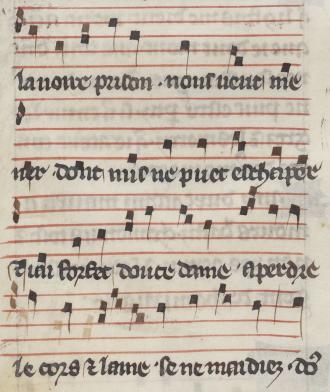 la noire prison · nous ueut me
ner · dont nus ne puet eschaper
⁊ iai forfet douce dame · a perdre
le cors ⁊ lame · se ne maidiez · do